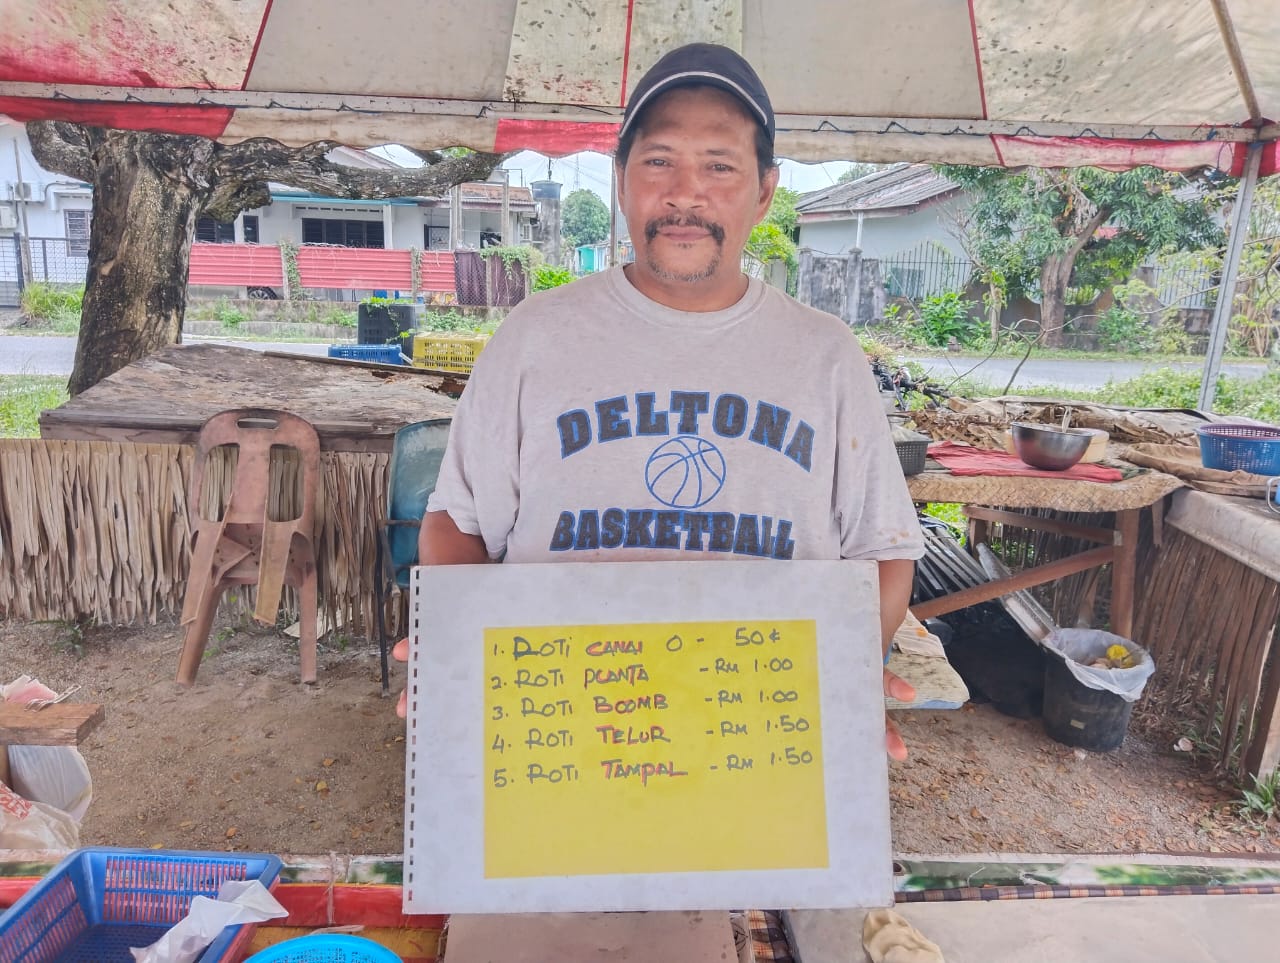 DELTONA
BASKETBALL
1. ROTI CANAI O - 50¢
2. ROTI PLANTA - RM 1.00
3. ROTI BOOMB - RM 1.00
4. ROTI TELUR - RM 1.50
5. ROTI TAMPAL - RM 1.50